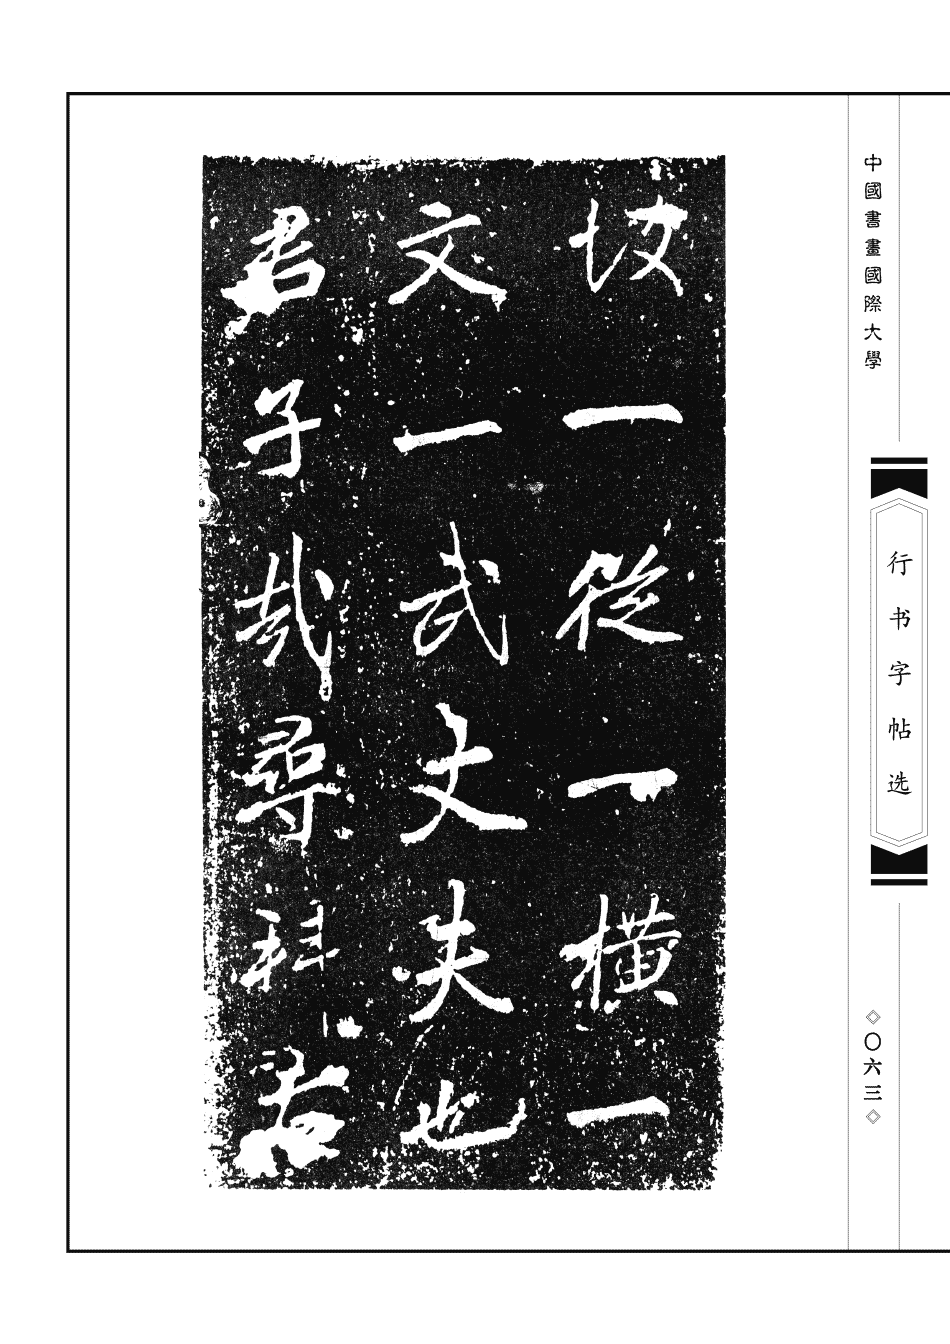 中國書畫國際大學
行书字帖选
◇〇六三◇
一從一橫一
文一武丈夫也
君子哉尋